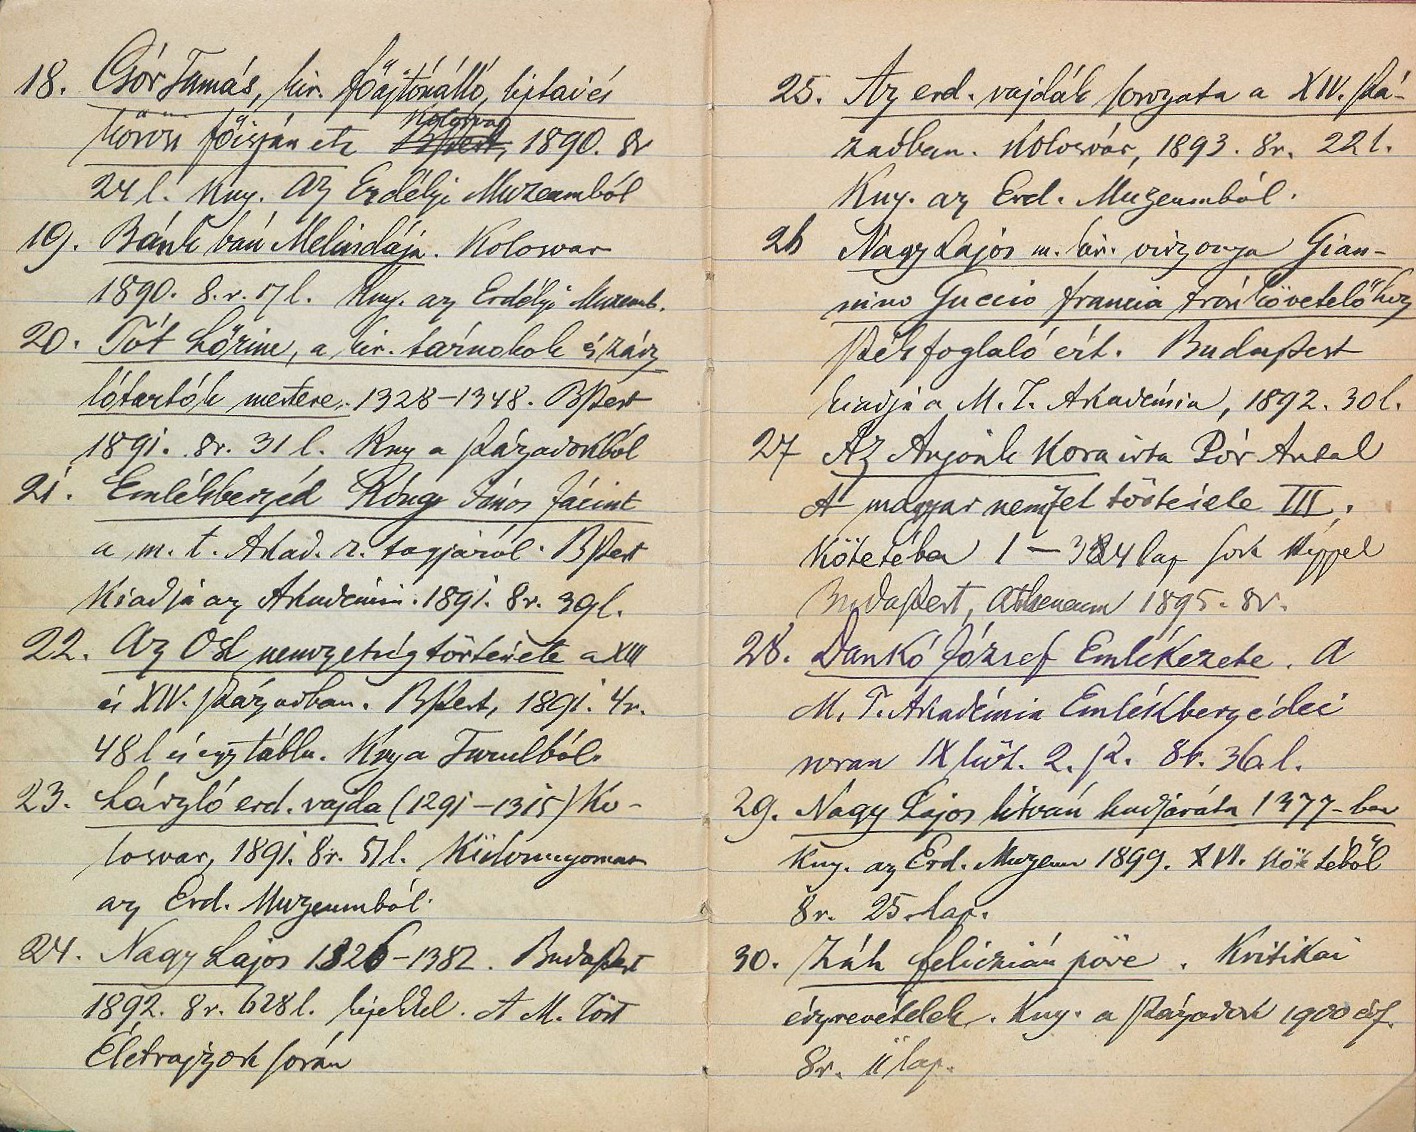 18. Csór Tamás, kir. főajtónálló, liptai és
körösi főispán etc Kolosvar 1890. 8r
24 l. Kny. Az Erdélyi Muzeumból
19. Bánk bán Melindája. Kolosvar
1890. 8.r. 17 l. Kny. az Erdélyi Muzeumb.
20. Tót Lőrinc, a kir. tárnokok és zász
lótartók mestere. 1328–1348. BPest
1891. 8r. 31 l. Kny a Századokból
21. Emlékbeszéd Rónay János Jácint
a m. t. Akad. r. tagjáról. BPest
Kiadja az Akadémia. 1891. 8r. 39 l.
22. Az Osl nemzetség története a XIII
és XIV. Században. BPest, 1891. 4r.
48 l és egy tábla. Kny a Turulból.
23. László erd. vajda (1291–1315) Ko-
losvar, 1891. 8r. 51 l. Különnyomat
az Erd. Muzeumból.
24. Nagy Lajos 1326–1382. Budapest
1892. 8r. 628 l. képekkel. A M. Tört
Életrajzok során
25. Az erd. vajdák sorozata a XIV. Szá-
zadban. Kolosvár, 1893. 8r. 22 l.
Kny. az Erd. Muzeumból.
26 Nagy Lajos m. kir. viszonya Gian-
nino Guccio francia trónkövetelőhöz
Székfoglaló ért. Budapest
kiadja a M. T. Akadémia, 1892. 30 l.
27 Az Anjouk Kora irta Pór Antal
A magyar nemzet története III.
Kötetében 1–384 lap sok képpel
Budapest, Atheneum 1895. 8r.
28. Dankó József Emlékezete. A
M. T. Akadémia Emlékbeszédei
soran IX köt. 2. sz. 8r. 36 l.
29. Nagy Lajos litván hadjárata 1377-ben
Kny. az Erd. Muzeum 1899. XVI. Kötetéből
8r. 25 lap.
30. Zách Feliczián pöre. Kritikai
észrevételek. Kny. a Századok 1900 évf.
8r. 11 lap.